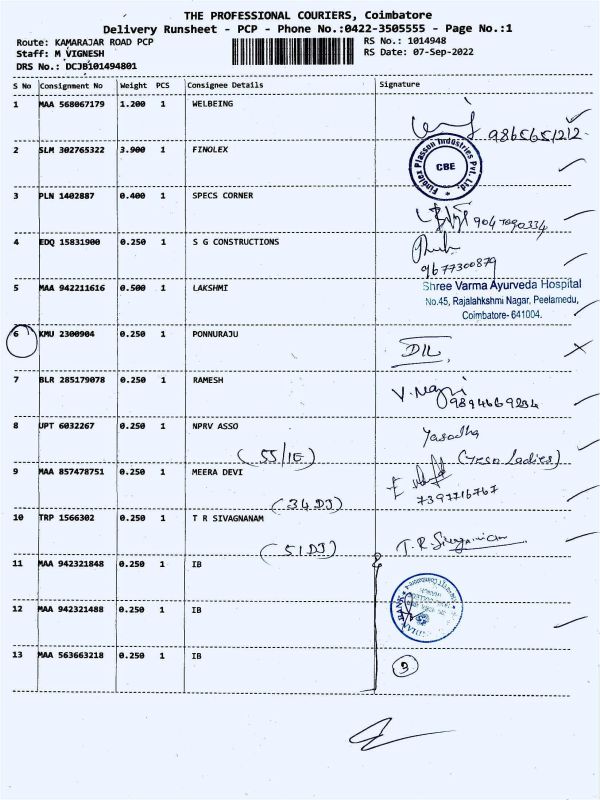 THE PROFESSIONAL COURIERS, Coimbatore
Delivery Runsheet - PCP - Phone No.:0422-3505555 - Page No.:1
Route: KAMARAJAR ROAD PCP RS No.: 1014948
Staff: M VIGNESH RS Date: 07-Sep-2022
DRS No.: DCJB101494801
S No Consignment No Weight PCS Consignee Details Signature
1 MAA 568067179 1.200 1 WELBEING
9865651212
2 SLM 302765322 3.900 1 FINOLEX
Finolex Plasson Industries Pvt. Ltd. CBE
3 PLN 1402887 0.400 1 SPECS CORNER
4 EDQ 15831900 0.250 1 S G CONSTRUCTIONS
9677300879
5 MAA 942211616 0.500 1 LAKSHMI
Shree Varma Ayurveda Hospital
No.45, Rajalahkshmi Nagar, Peelamedu,
Coimbatore- 641004.
6 KMU 2300904 0.250 1 PONNURAJU
DIL
7 BLR 285179078 0.250 1 RAMESH
9894669234
8 UPT 6032267 0.250 1 NPRV ASSO
Yasodha
(55/IE)
9 MAA 857478751 0.250 1 MEERA DEVI
7397716767
(34 DJ)
10 TRP 1566302 0.250 1 T R SIVAGNANAM
(51 DJ) T.R. Sivagnanam
11 MAA 942321848 0.250 1 IB
12 MAA 942321488 0.250 1 IB
INDIAN BANK
13 MAA 563663218 0.250 1 IB